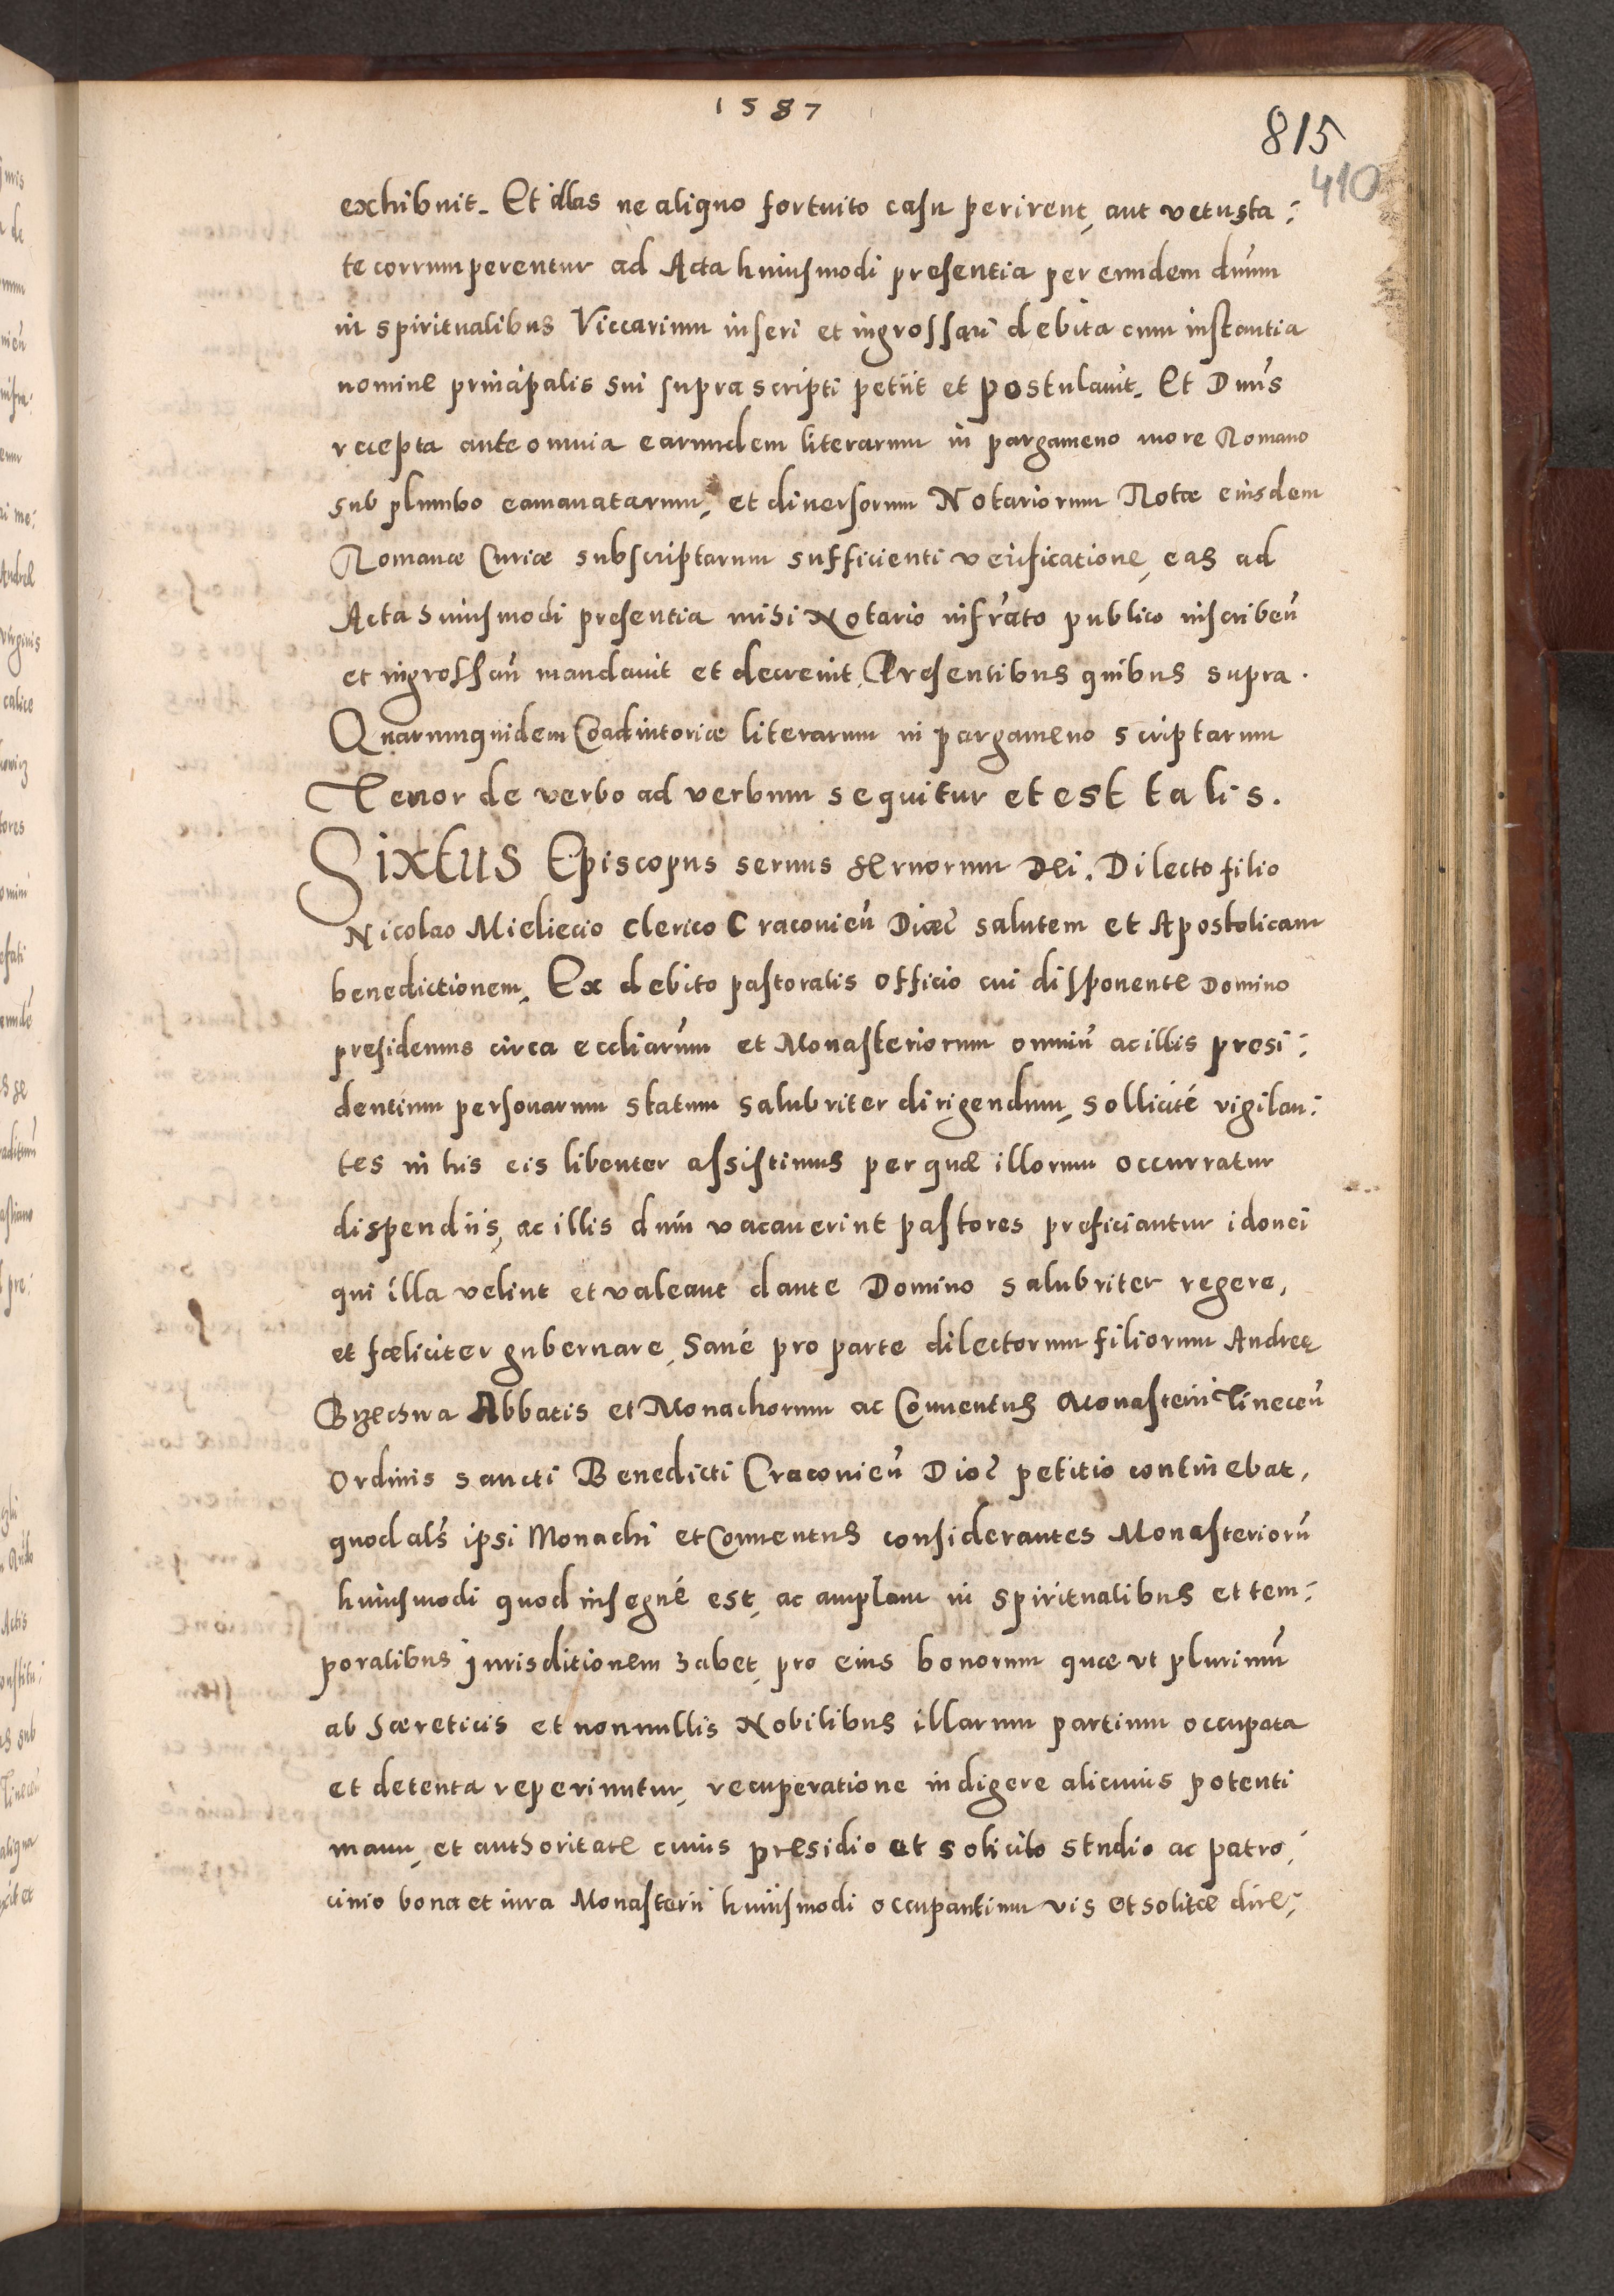 1587
815
410
exhibuit. Et illas ne aliquo fortuito casu perirent, aut vetusta:
te corrumperentur ad Acta huiusmodi presentia per eundem dnum
in spiritualibus Viccarium inseri et ingrossari debita cum instantia
nomine principalis sui supra scripti petiit et postulavit. Et Dnus
recepta ante omnia earundem literarum in pargameno more Romano
sub plumbo eamanatarum, et diversorum Notariorum Rotae eiusdem
Romanae Curiae subscriptarum sufficienti verificatione, eas ad
Acta huiusmodi presentia mihi Notario infrato publico inscriben
et ingrossan mandavit et decrevit, Presentibus quibus supra.
Quarumquidem Coadiutoriae literarum in pargameno scriptarum
Tenor de verbo ad verbum sequitur et est talis.
Sixtus Episcopus servus servorum Dei. Dilecto filio
Nicolao Mieliecio clerico Cracovien Dioec salutem et Apostolicam
benedictionem, Ex debito pastoralis officio cui disponente Domino
presidemus circa eccliarum et Monasteriorum omniu ac illis presi:
dentium personarum statum salubriter dirigendum, sollicité vigilan:
tes in his eis libenter assistimus per quae illorum occurratur
dispendiis, ac illis dum vacaverint pastores preficiantur idonei
qui illa velint et valeant dante Domino salubriter regere,
et foeliciter gubernare, Sané pro parte dilectorum filiorum Andreę
Brzechwa Abbatis et Monachorum ac Conventus Monasterii Tinecen
Ordinis sancti Benedicti Cracovien Dioc petitio continebat,
quod als ipsi Monachi et Conventus considerantes Monasterioru
huiusmodi quod insegné est, ac amplam in spiritualibus et tem:
poralibus Jurisditionem habet, pro eius bonorum quae vt plurimu
ab haereticis et nonnullis Nobilibus illarum partium occupata
et detenta reperiuntur, recuperatione indigere alicuius potenti
manu, et authoritate cuius presidio et solicito studio ac patro:
cinio bona et iura Monasterii huiusmodi occupantium vis et solitae dire: